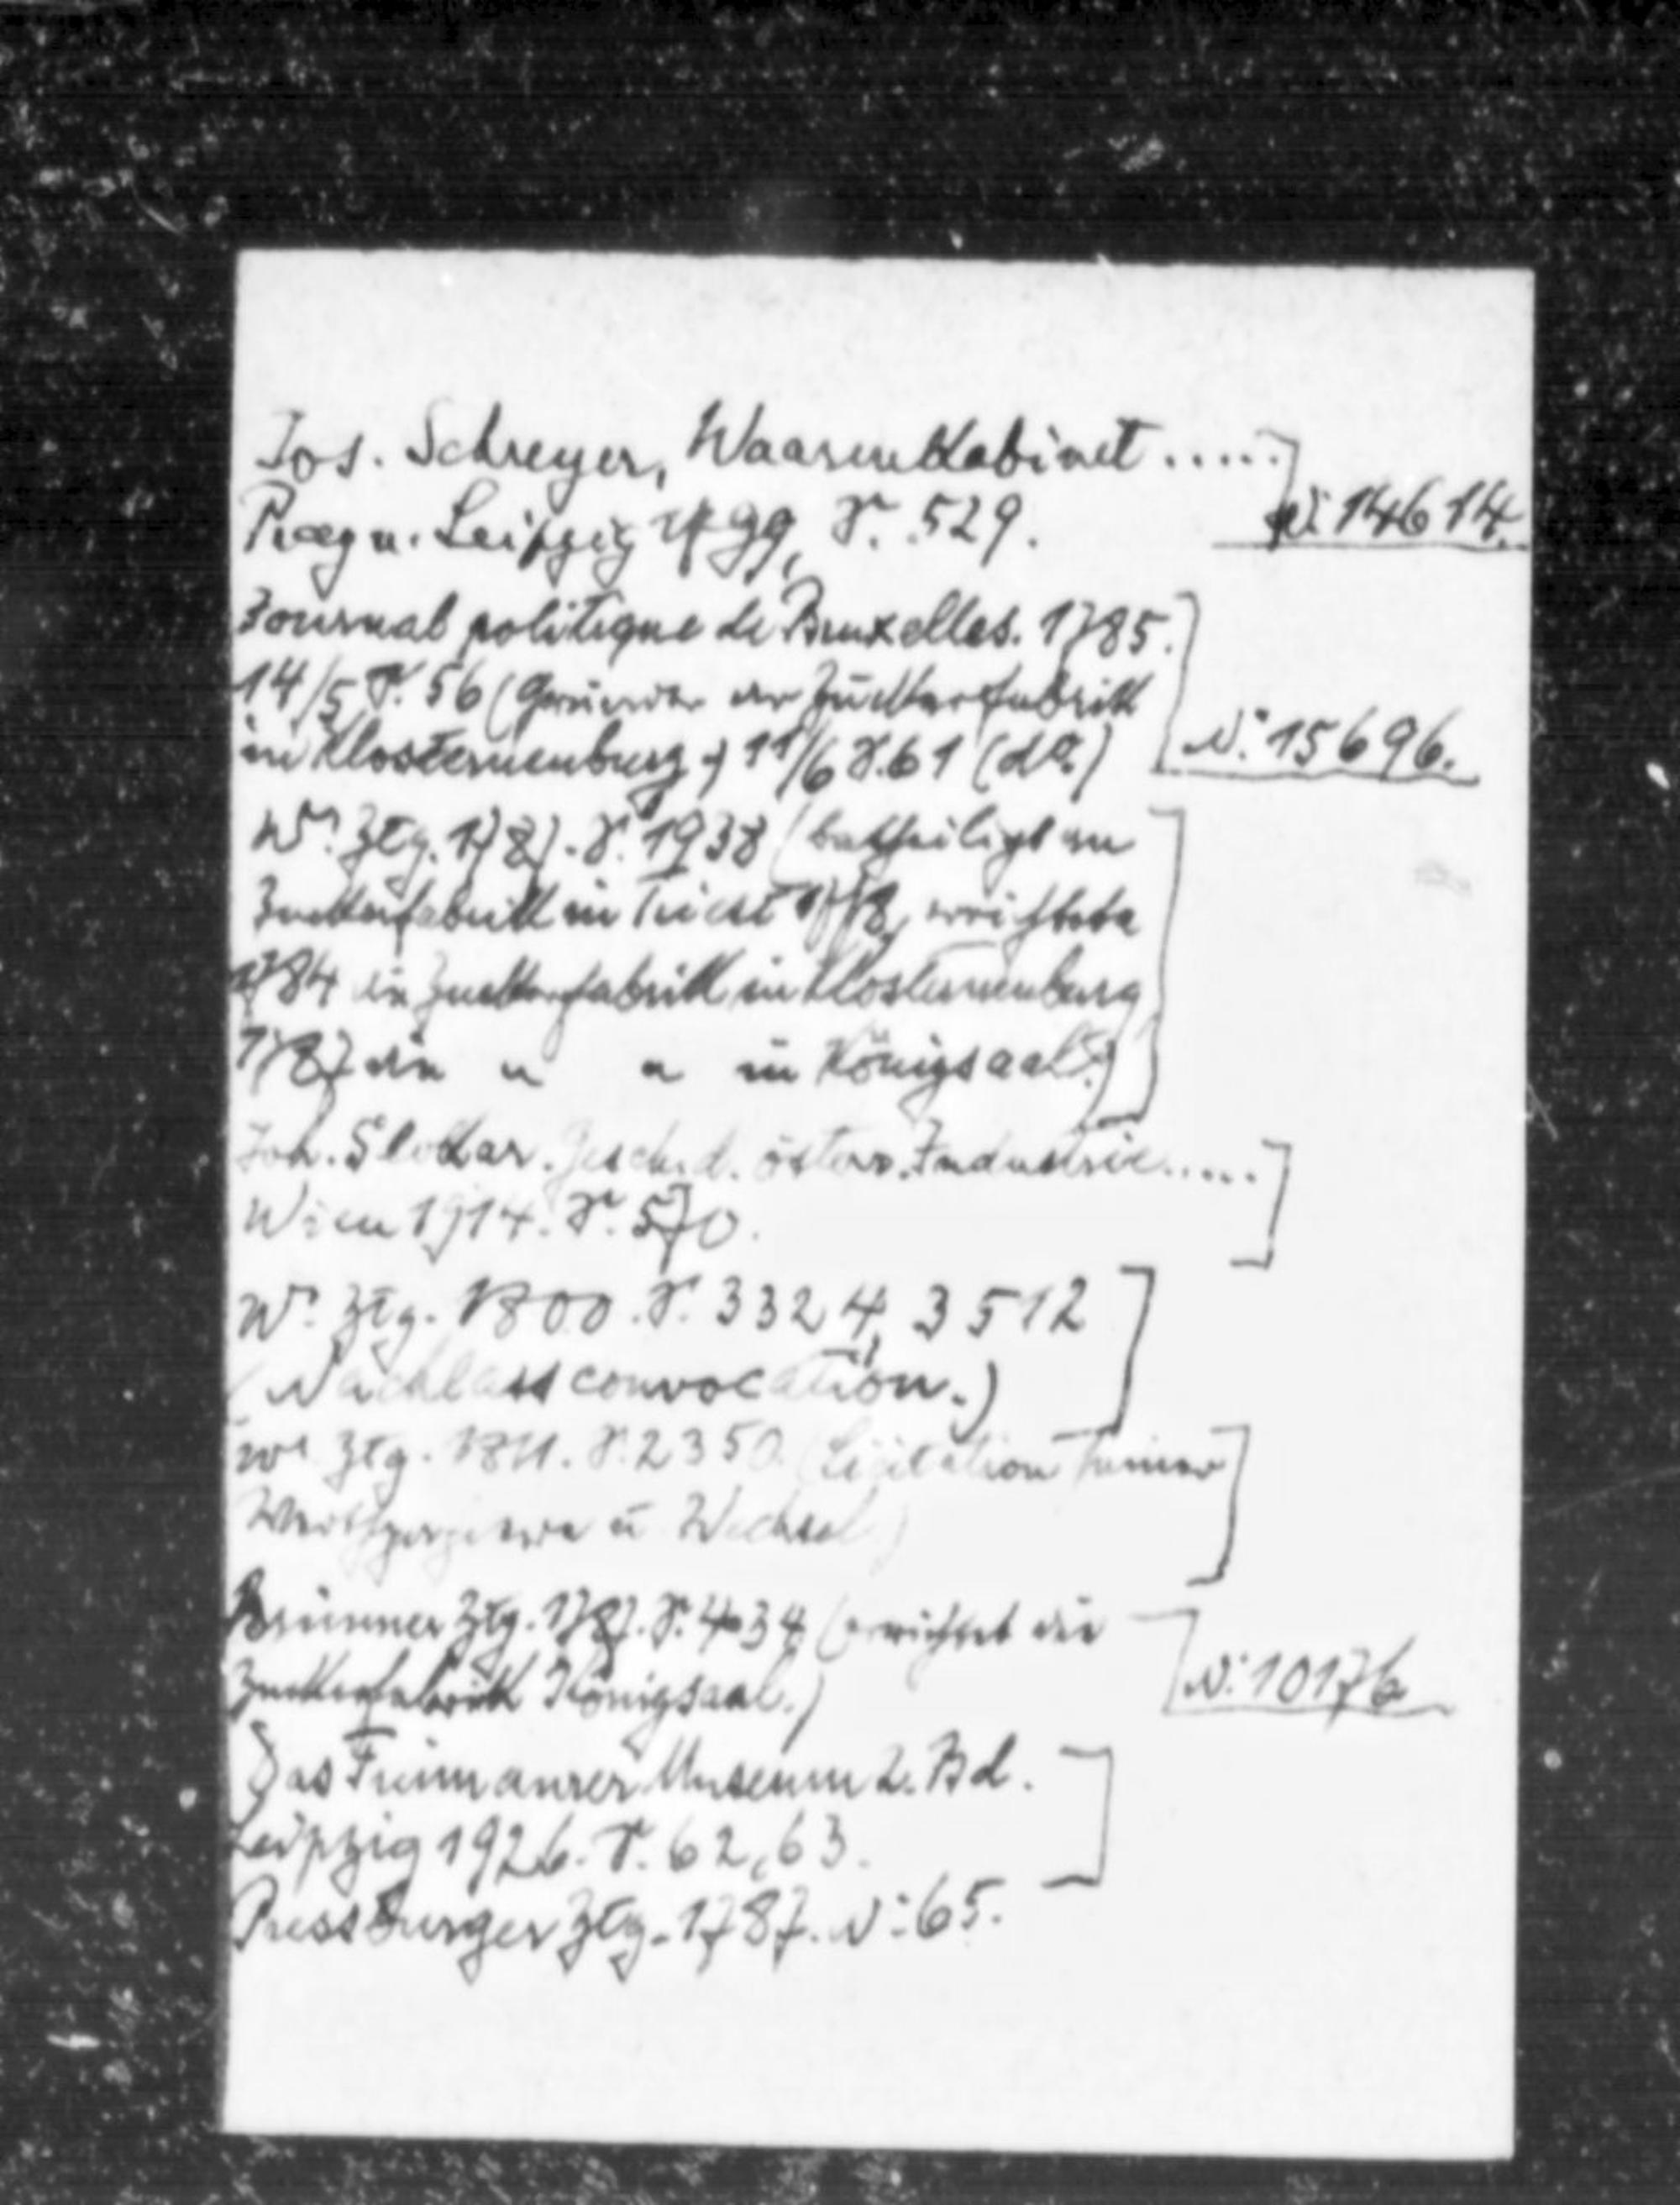 Jos. Schreyer, Waarenkabinet .....
Prag u. Leipzig 1799, S. 529.
N: 14614.
Journal politique de Bruxelles. 1785.
14/5 S. 56 (Gründer der Zuckerfabrik
in Klosterneuburg.) 11/6 S. 61 (do.)
N: 15696.
Wr. Ztg. 1787. S. 1938 (betheiligt an
Zuckerfabrik in Triest, errichtete
1784 die Zuckerfabrik in Klosterneuburg
1787 die " " in Königsaal.)
Joh. Slokar. Gesch. d. österr. Industrie.....
Wien 1914. S. 570.
Wr. Ztg. 1800. S. 3324, 3512
(Nachlassconvocation.)
Wr. Ztg. 1811. S. 2350. (Licitation seiner
u. Wechsel)
Brünner Ztg. 1787. S. 434 (errichtet die
Zuckerfabrik Königsaal.)
N: 10176
Das Freimaurer Museum 2. Bd.
Leipzig 1926. S. 62, 63.
Pressburger Ztg. 1787. N: 65.